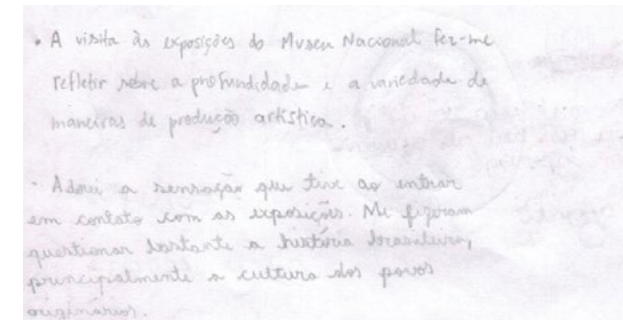 • A visita às exposições do Museu Nacional fez-me
refletir sobre a profundidade e a variedade de
maneiras de produção artística.
- Adorei a sensação que tive ao entrar
em contato com as exposições. Me fizeram
questionar bastante a história brasileira,
principalmente a cultura dos povos
originários.